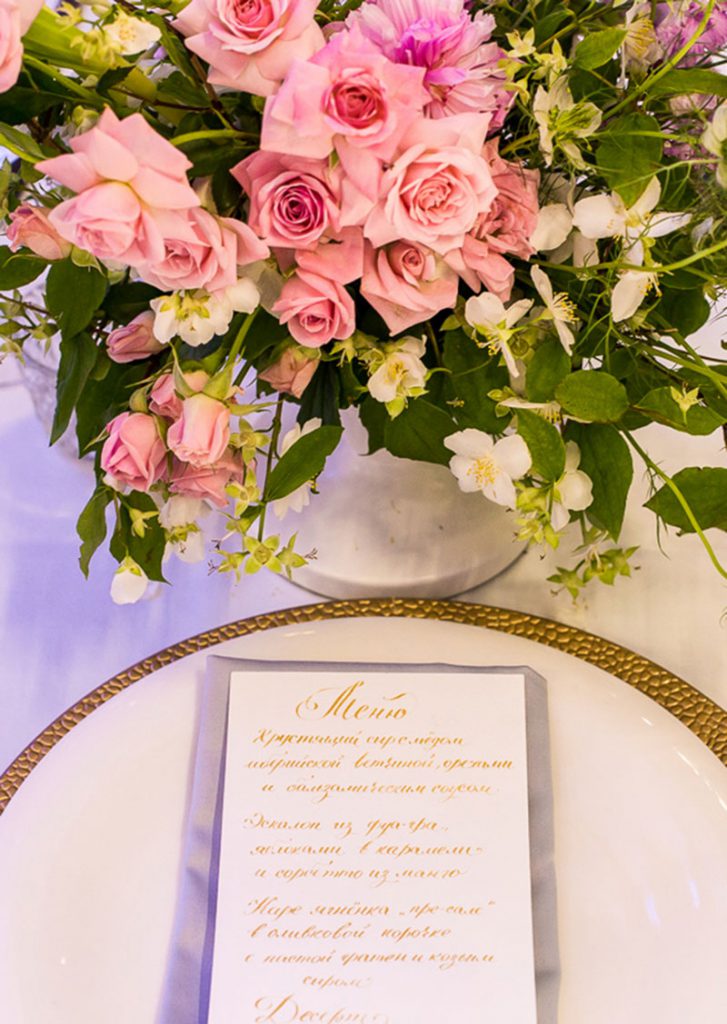 Меню
Хрустящий сыр с мёдом
иберийской ветчиной, орехами
и бальзамическим соусом
Эскалоп из фуа-гра,
яблоками в карамели
и сорбетом из манго
Каре ягнёнка „пре-сале"
в оливковой корочке
с пастой фрегои и козьим
сыром
Десерт